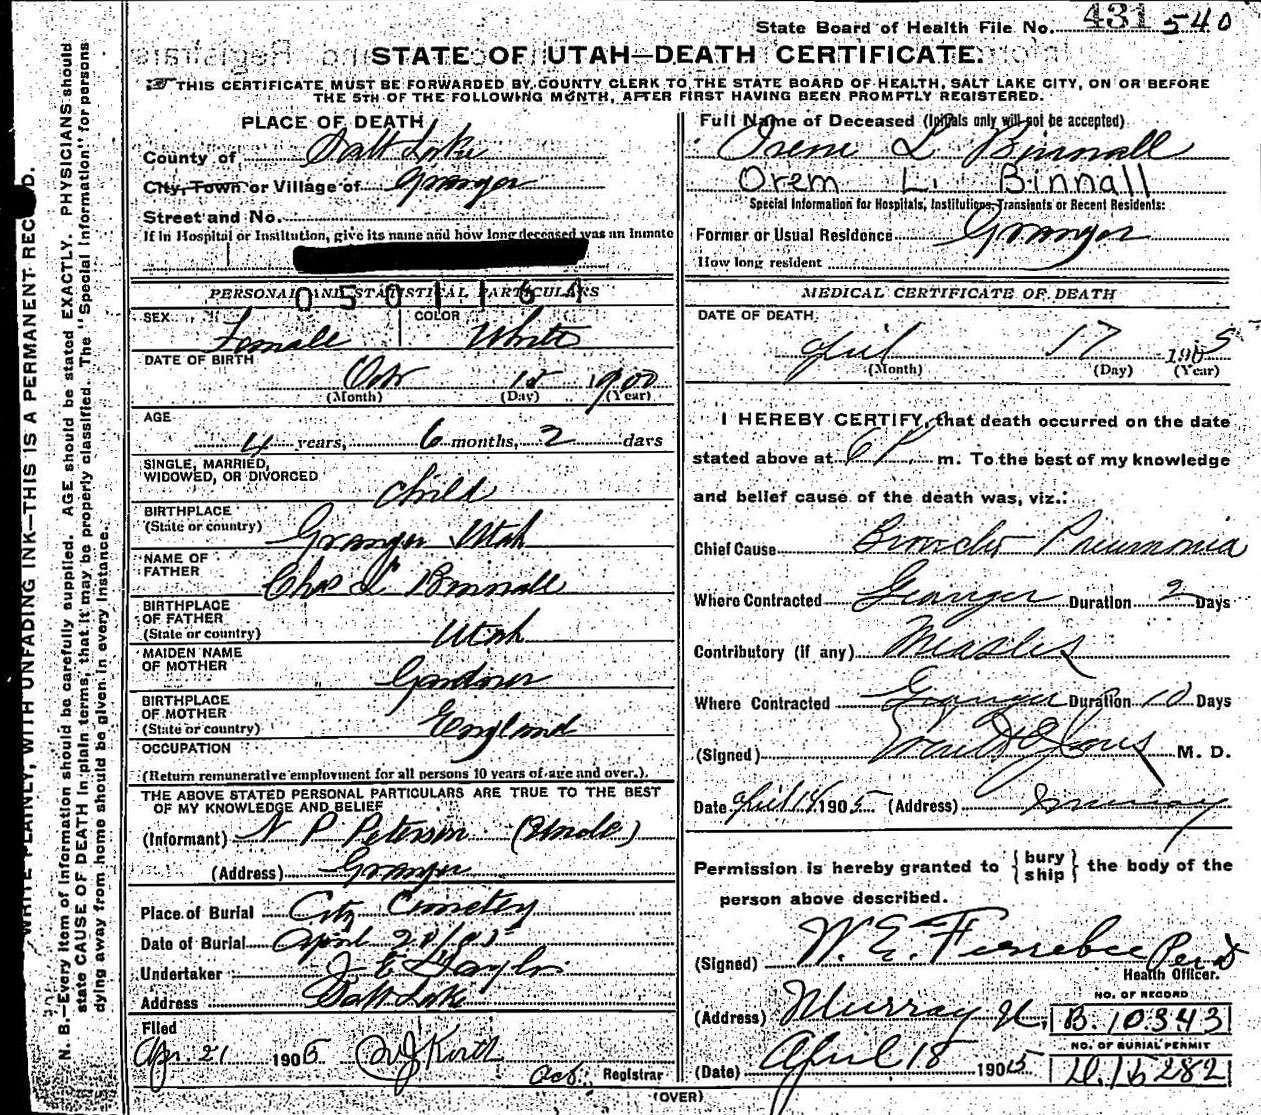 State Board of Health File No. 431 540
STATE OF UTAH—DEATH CERTIFICATE.
THIS CERTIFICATE MUST BE FORWARDED BY COUNTY CLERK TO THE STATE BOARD OF HEALTH, SALT LAKE CITY, ON OR BEFORE
THE 5TH OF THE FOLLOWING MONTH, AFTER FIRST HAVING BEEN PROMPTLY REGISTERED.
WRITE PLAINLY, WITH UNFADING INK—THIS IS A PERMANENT RECORD.
N. B.—Every item of information should be carefully supplied. AGE should be stated EXACTLY. PHYSICIANS should
state CAUSE OF DEATH in plain terms, that it may be properly classified. The "Special Information" for persons
dying away from home should be given in every instance.
PLACE OF DEATH
County of Salt Lake
City, Town or Village of Granger
Street and No.
If in Hospital or Institution, give its name and how long deceased was an inmate
PERSONAL AND STATISTICAL PARTICULARS
0501164
SEX Female COLOR White
DATE OF BIRTH
Oct 15 1900
(Month) (Day) (Year)
AGE
4 years, 6 months, 2 days
SINGLE, MARRIED,
WIDOWED, OR DIVORCED
Child
BIRTHPLACE
(State or country) Granger Utah
NAME OF
FATHER Chas L Binnall
BIRTHPLACE
OF FATHER
(State or country) Utah
MAIDEN NAME
OF MOTHER Gardner
BIRTHPLACE
OF MOTHER
(State or country) England
OCCUPATION
(Return remunerative employment for all persons 10 years of age and over.)
THE ABOVE STATED PERSONAL PARTICULARS ARE TRUE TO THE BEST
OF MY KNOWLEDGE AND BELIEF
(Informant) N P Peterson (Uncle)
(Address) Granger
Place of Burial City Cemetery
Date of Burial April 20/05
Undertaker J E Taylor
Address Salt Lake
Filed
Apr. 21 1905
Registrar
Full Name of Deceased (Initials only will not be accepted)
Orene L Binnall
Orem L. Binnall
Special Information for Hospitals, Institutions, Transients or Recent Residents:
Former or Usual Residence Granger
How long resident
MEDICAL CERTIFICATE OF DEATH
DATE OF DEATH
April 17 1905
(Month) (Day) (Year)
I HEREBY CERTIFY, that death occurred on the date
stated above at 6 P. m. To the best of my knowledge
and belief cause of the death was, viz.:
Chief Cause Broncho Pneumonia
Where Contracted Granger Duration 2 Days
Contributory (if any) Measles
Where Contracted Granger Duration 10 Days
(Signed) M. D.
Date April 1905 (Address) Murray
Permission is hereby granted to { bury ship } the body of the
person above described.
(Signed) W. E. Ferrebee Per
Health Officer.
(Address) Murray
NO. OF RECORD
B. 10343
(Date) April 18 1905
NO. OF BURIAL PERMIT
D. 15282
(OVER)